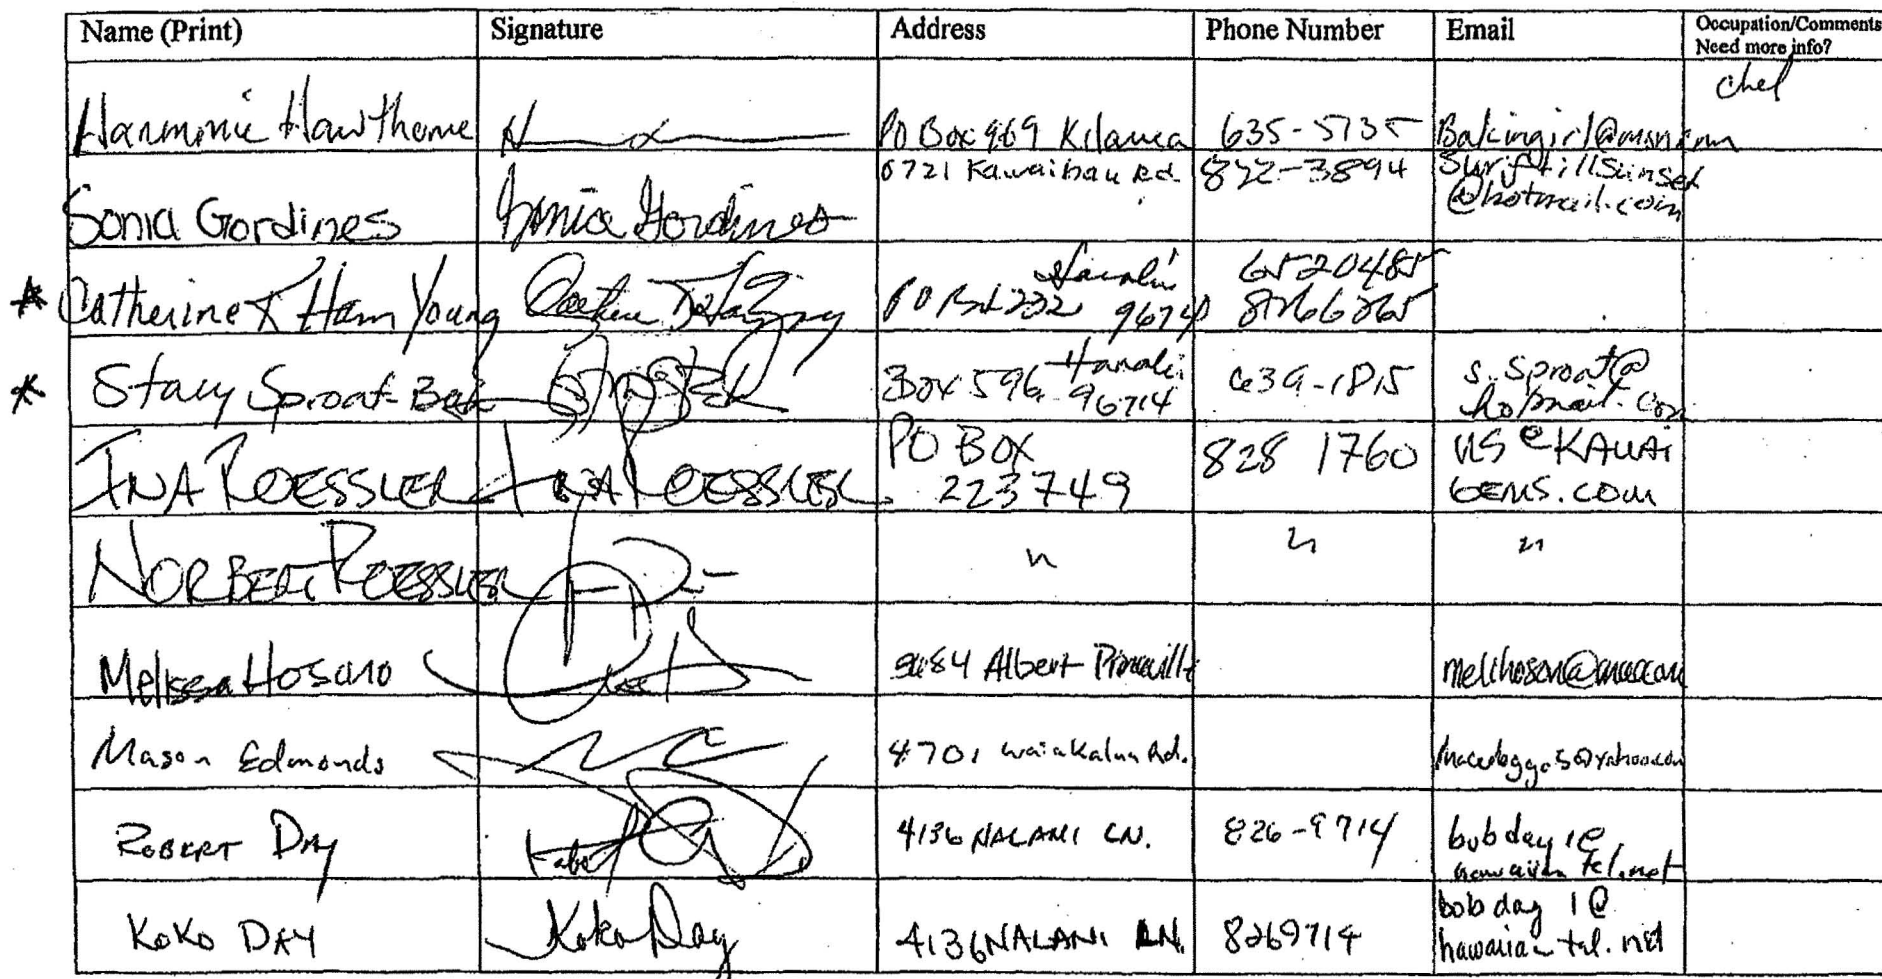 Name (Print) Signature Address Phone Number Email Occupation/Comments
Need more info?
Harmonie Hawthorne PO Box 969 Kilauea 635-5735 Bakingirl@msn.com Chef
Sonia Gordines Sonia Gordines 6721 Kawaihau Rd. 822-3894 Surftillsunset
@hotmail.com
* Catherine K Ham Young PO Box 232 Hanalei 96714 6520485
8266265
* Stacy Sproat-Beck Box 596 Hanalei 96714 639-1815 s.sproat@
hotmail.com
INA ROESSLER INA ROESSLER PO BOX 828 1760 US@KAUAI
223749 GEMS.COM
NORBERT ROESSLER " " "
Melissa Hosano Albert Princeville
Mason Edmonds 4701 Waiakalua Rd.
ROBERT DAY 4136 NALANI LN. 826-9714 bobday1@
hawaiian tel.net
KOKO DAY Koko Day 4136 NALANI LN. 8269714 bobday1@
hawaiian tel.net